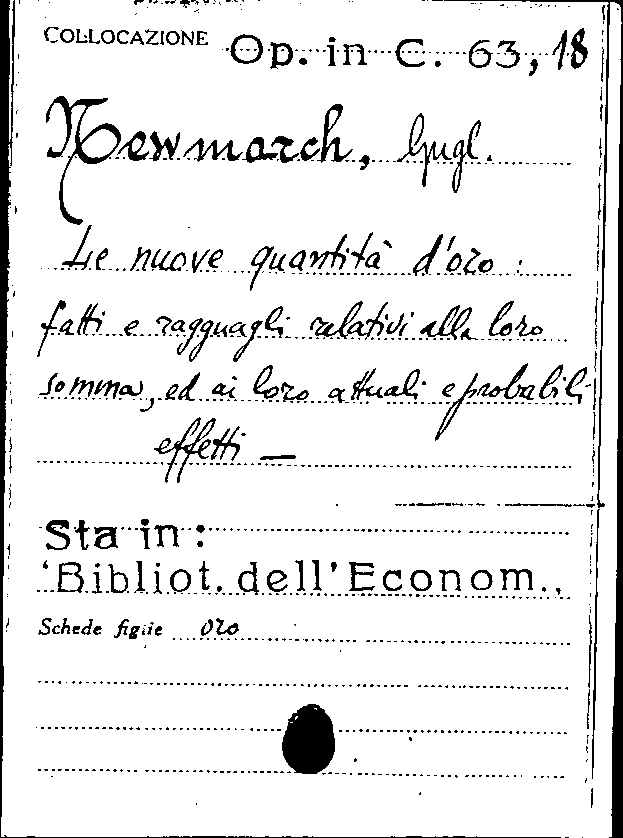 COLLOCAZIONE Op. in C. 63, 18
Newmarch, Gugl.
Le nuove quantità d'oro :
fatti e ragguagli relativi alla loro
somma, ed ai loro attuali e probabili
effetti —
Sta in :
'Bibliot. dell'Econom.,
Schede figlie oro